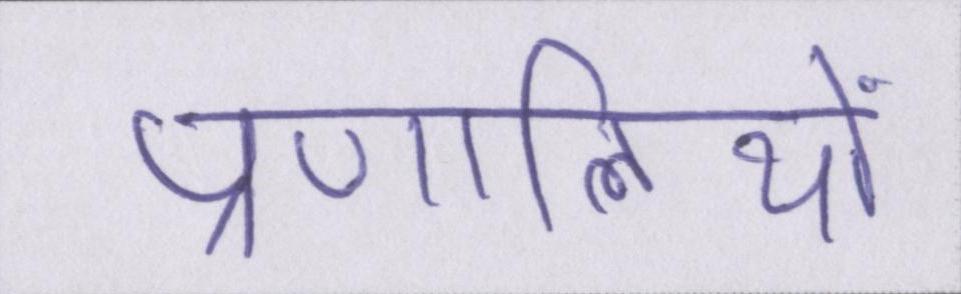 प्रणालियों